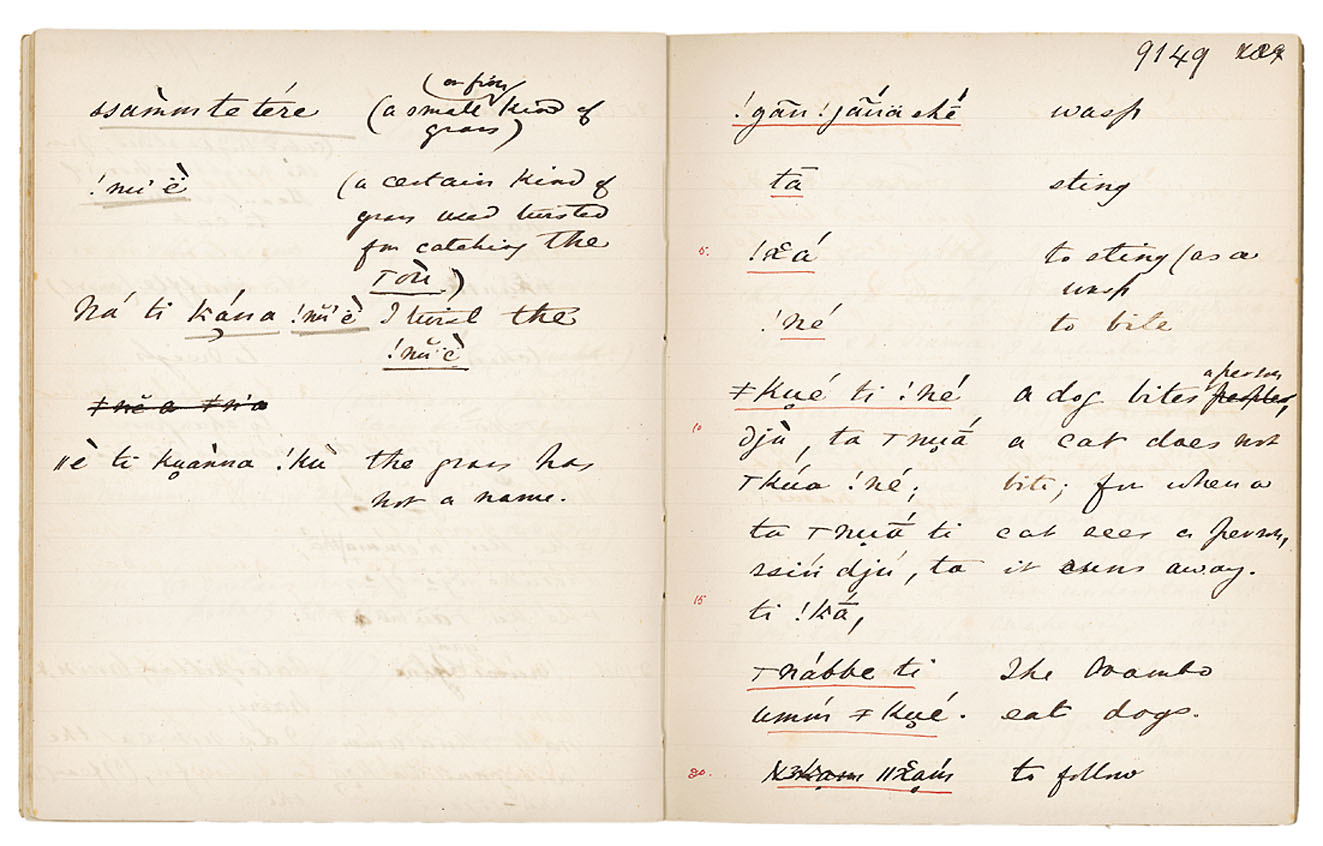 (or fine)
ssàmm te tére (a small kind of
grass)
!nu'è̀ (a certain kind of
grass used twisted
for catching the
⊤où.)
Ná ti kána !nŭ'è̀ I twist the
!nŭ'è̀
ǁè ti ku̯ànna !kù the grass has
not a name.
9149
wasp
tā sting
5. !x̵á to sting (as a
wasp
!né to bite
a person
ǂku̯é ti !né a dog bites people,
10 djù, ta ⊤nu̯ā́ a cat does not
⊤kúa !né; bite; for when a
ta ⊤nu̯ā́ ti cat sees a person,
ssiń djú, ta it runs away.
15 ti !kā́,
⊤nábbe ti The Ovambo
umḿ ǂku̯é. eat dogs.
20. ǁx̵a̯ḿ to follow